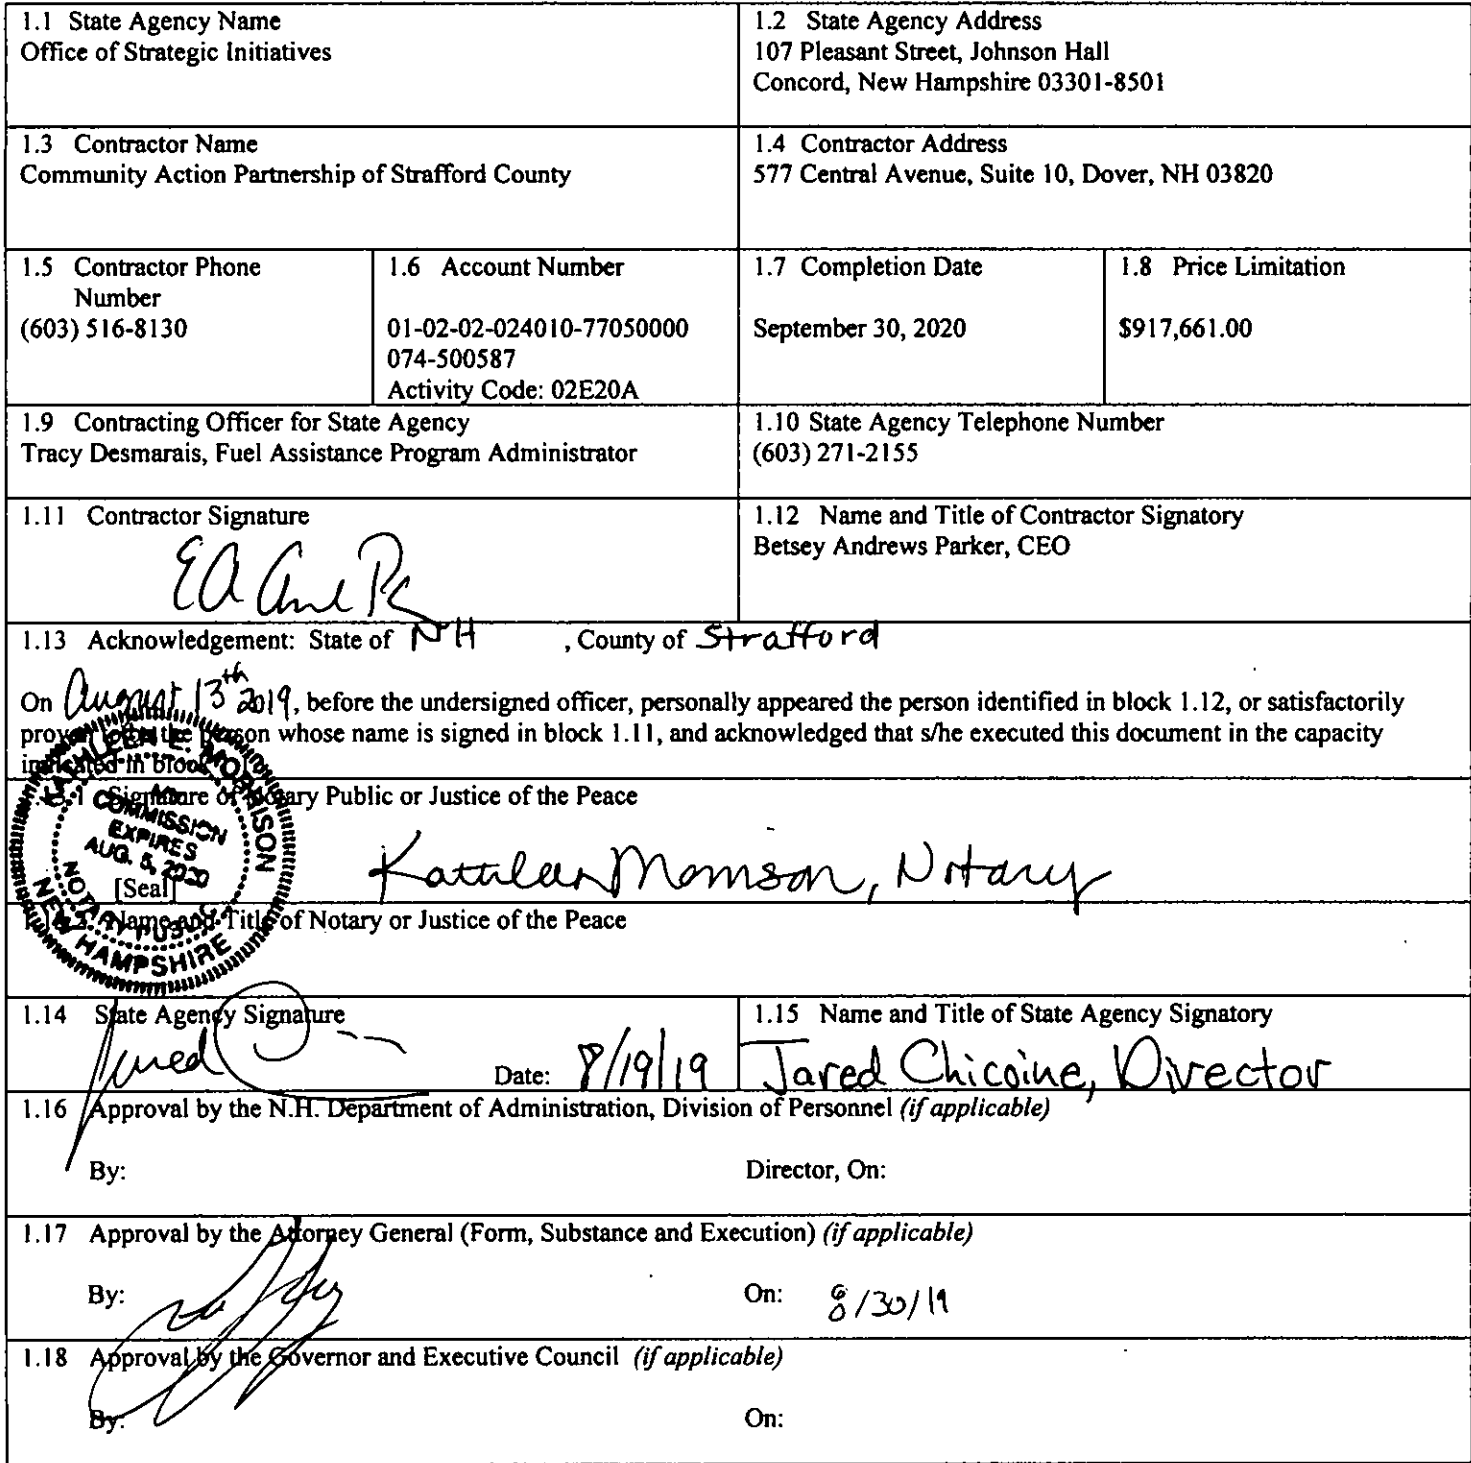 1.1 State Agency Name
Office of Strategic Initiatives
1.2 State Agency Address
107 Pleasant Street, Johnson Hall
Concord, New Hampshire 03301-8501
1.3 Contractor Name
Community Action Partnership of Strafford County
1.4 Contractor Address
577 Central Avenue, Suite 10, Dover, NH 03820
1.5 Contractor Phone
Number
(603) 516-8130
1.6 Account Number
01-02-02-024010-77050000
074-500587
Activity Code: 02E20A
1.7 Completion Date
September 30, 2020
1.8 Price Limitation
$917,661.00
1.9 Contracting Officer for State Agency
Tracy Desmarais, Fuel Assistance Program Administrator
1.10 State Agency Telephone Number
(603) 271-2155
1.11 Contractor Signature
1.12 Name and Title of Contractor Signatory
Betsey Andrews Parker, CEO
1.13 Acknowledgement: State of NH , County of Strafford
On August 13th 2019, before the undersigned officer, personally appeared the person identified in block 1.12, or satisfactorily
proven to be the person whose name is signed in block 1.11, and acknowledged that s/he executed this document in the capacity
indicated in block
Signature of Notary Public or Justice of the Peace
KATHLEEN E. MORRISON
MY
COMMISSION
EXPIRES
AUG. 5, 2020
NOTARY PUBLIC
NEW HAMPSHIRE
[Seal]
Kathleen Morrison, Notary
Name and Title of Notary or Justice of the Peace
1.14 State Agency Signature
Jared
Date: 8/19/19
1.15 Name and Title of State Agency Signatory
Jared Chicoine, Director
1.16 Approval by the N.H. Department of Administration, Division of Personnel (if applicable)
By:
Director, On:
1.17 Approval by the Attorney General (Form, Substance and Execution) (if applicable)
By:
On: 8/30/19
1.18 Approval by the Governor and Executive Council (if applicable)
By:
On: